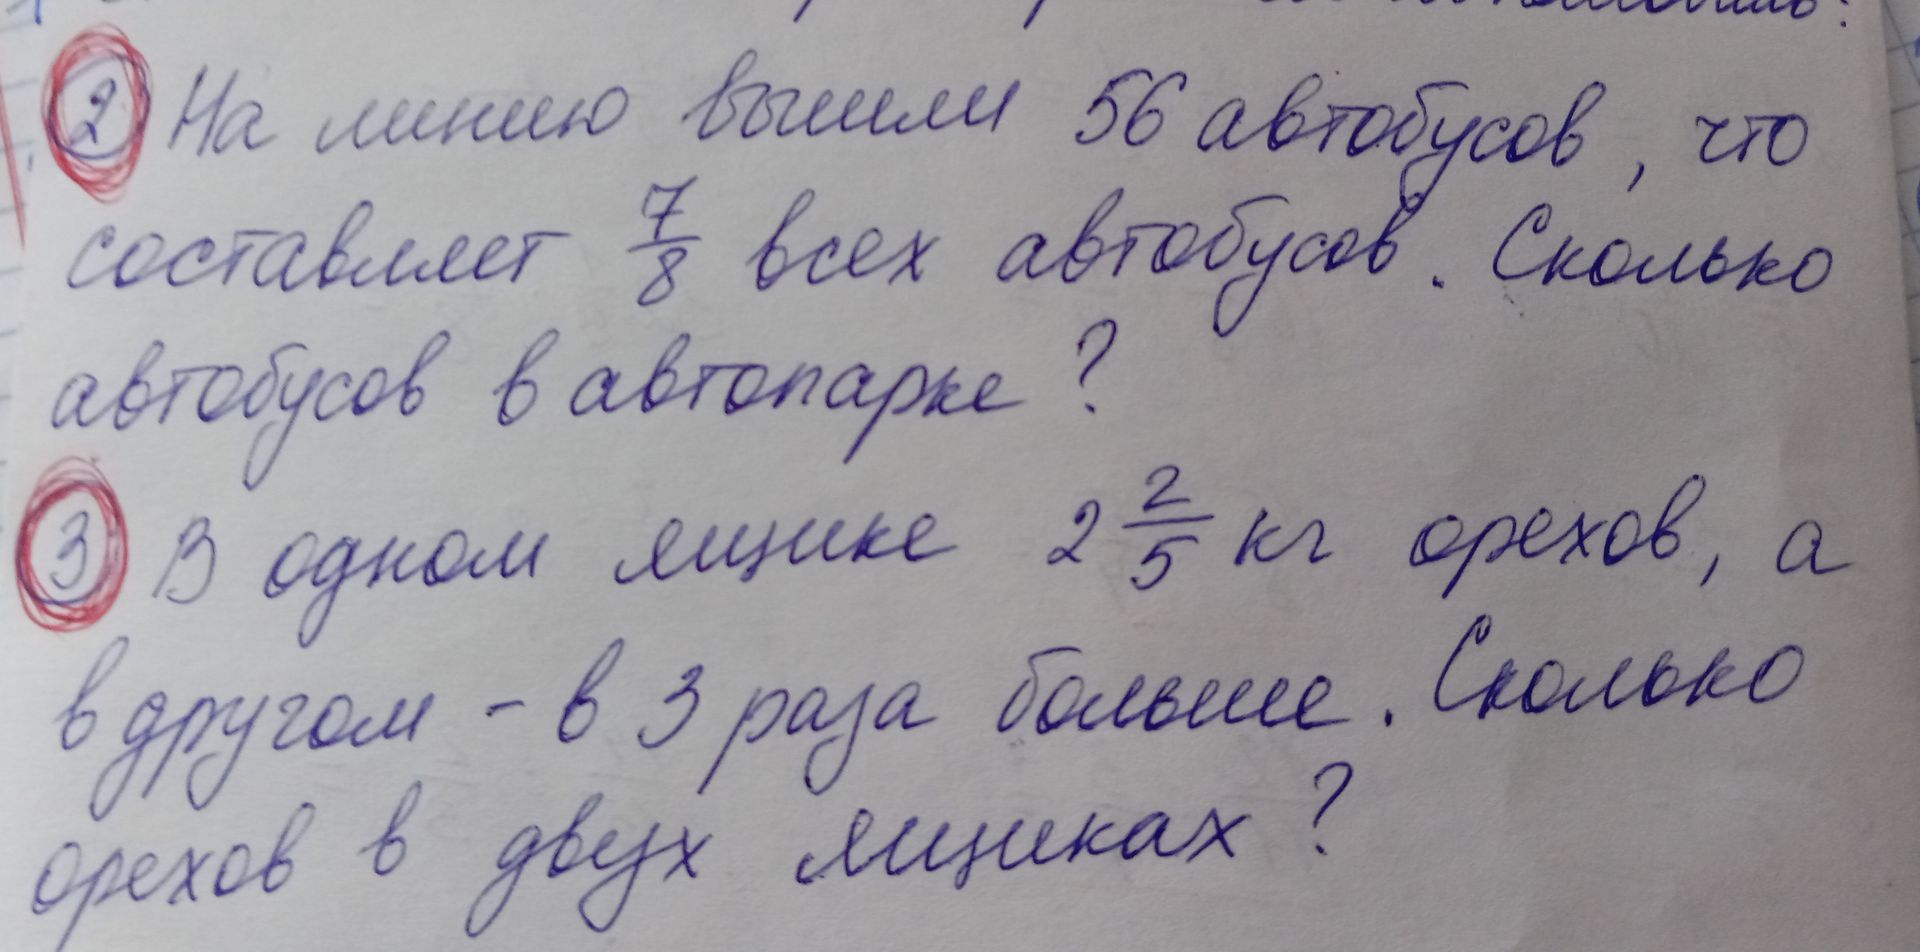 ② На линию вышли 56 автобусов, что
составляет 7/8 всех автобусов. Сколько
автобусов в автопарке?
③ В одном ящике 2 2/5 кг орехов, а
в другом - в 3 раза больше. Сколько
орехов в двух ящиках?